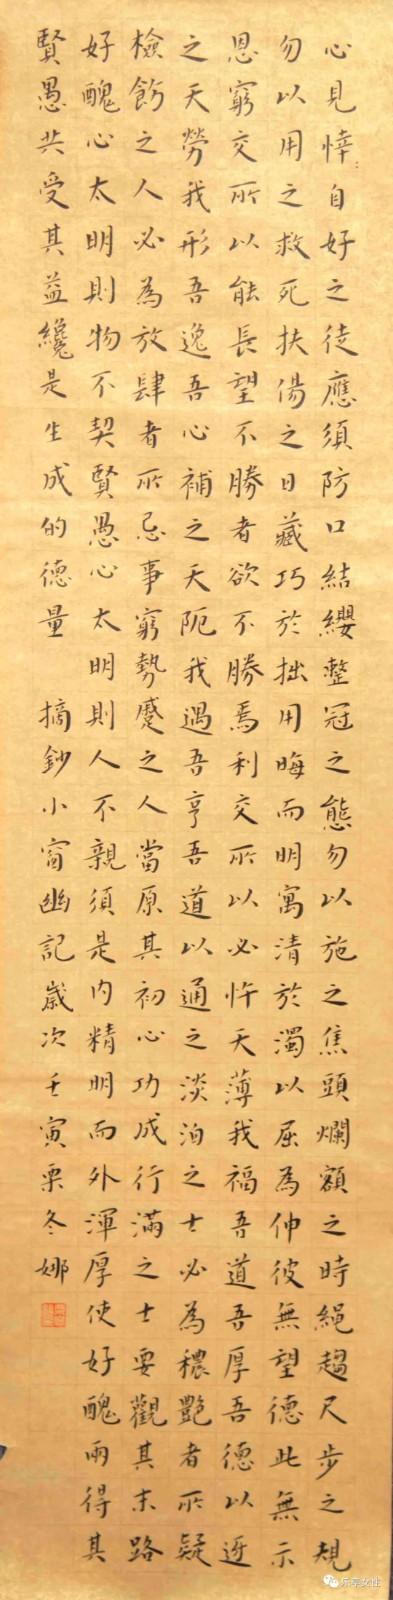 心見悻自好之徒應須防口結纓整冠之態勿以施之焦頭爛額之時繩趨尺步之規
勿以用之救死扶傷之日藏巧於拙用晦而明寓清於濁以屈為伸彼無望德此無示
恩窮交所以能長望不勝者欲不勝焉利交所以必忤天薄我福吾道吾厚吾德以迓
之天勞我形吾逸吾心補之天阨我遇吾亨吾道以通之淡泊之士必為穠艷者所疑
檢飭之人必為放肆者所忌事窮勢蹙之人當原其初心功成行滿之士要觀其末路
好醜心太明則物不契賢愚心太明則人不親須是內精明而外渾厚使好醜兩得其
賢愚共受其益纔是生成的德量 摘鈔小窗幽記歲次壬寅栗冬娜
乐亭女性